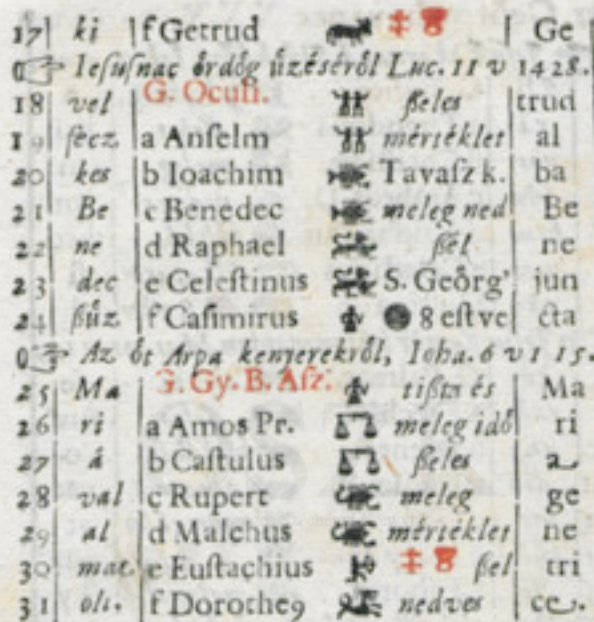 17 ki f Getrud Ge
Iesusnac ôrdôg ûzésérôl Luc. 11 v 1428.
18 vel G. Oculi. ßeles trud
19 fecz a Anſelm mértéklet al
20 kes b Ioachim Tavaſz k. ba
21 Be c Benedec meleg ned Be
22 ne d Raphael ßél. ne
23 dec e Celeſtinus S. Geôrg' jun
24 ßûz f Caſimirus 8 eſt ve cta
Az ôt Arpa kenyerekrôl, Ioha. 6 v 1 15.
25 Ma G. Gy. B. Aſz. tißta és Ma
26 ri a Amos Pr. meleg idô ri
27 á b Caſtulus ßeles a
28 val c Rupert meleg ge
29 al d Malchus mértéklet ne
30 mat. e Euſtachius ßel tri
31 olt. f Dorothe9 nedves ce.